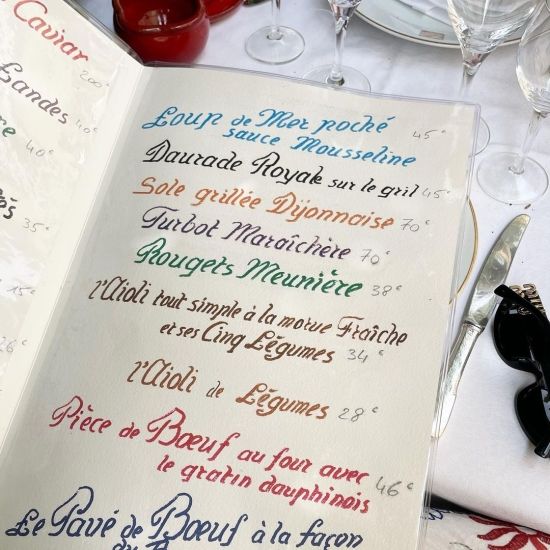 Caviar
200€
Landes
40€
40€
35€
15€
26€
Loup de Mer poché 45€
sauce Mousseline
Daurade Royale sur le gril 45€
Sole grillée Dijonnaise 70€
Turbot Maraîchère 70€
Rougets Meunière 38€
l'Aïoli tout simple à la morue Fraîche
et ses Cinq Légumes 34€
l'Aïoli de Légumes 28€
Pièce de Bœuf au four avec
le gratin dauphinois 46€
Le Pavé de Bœuf à la façon